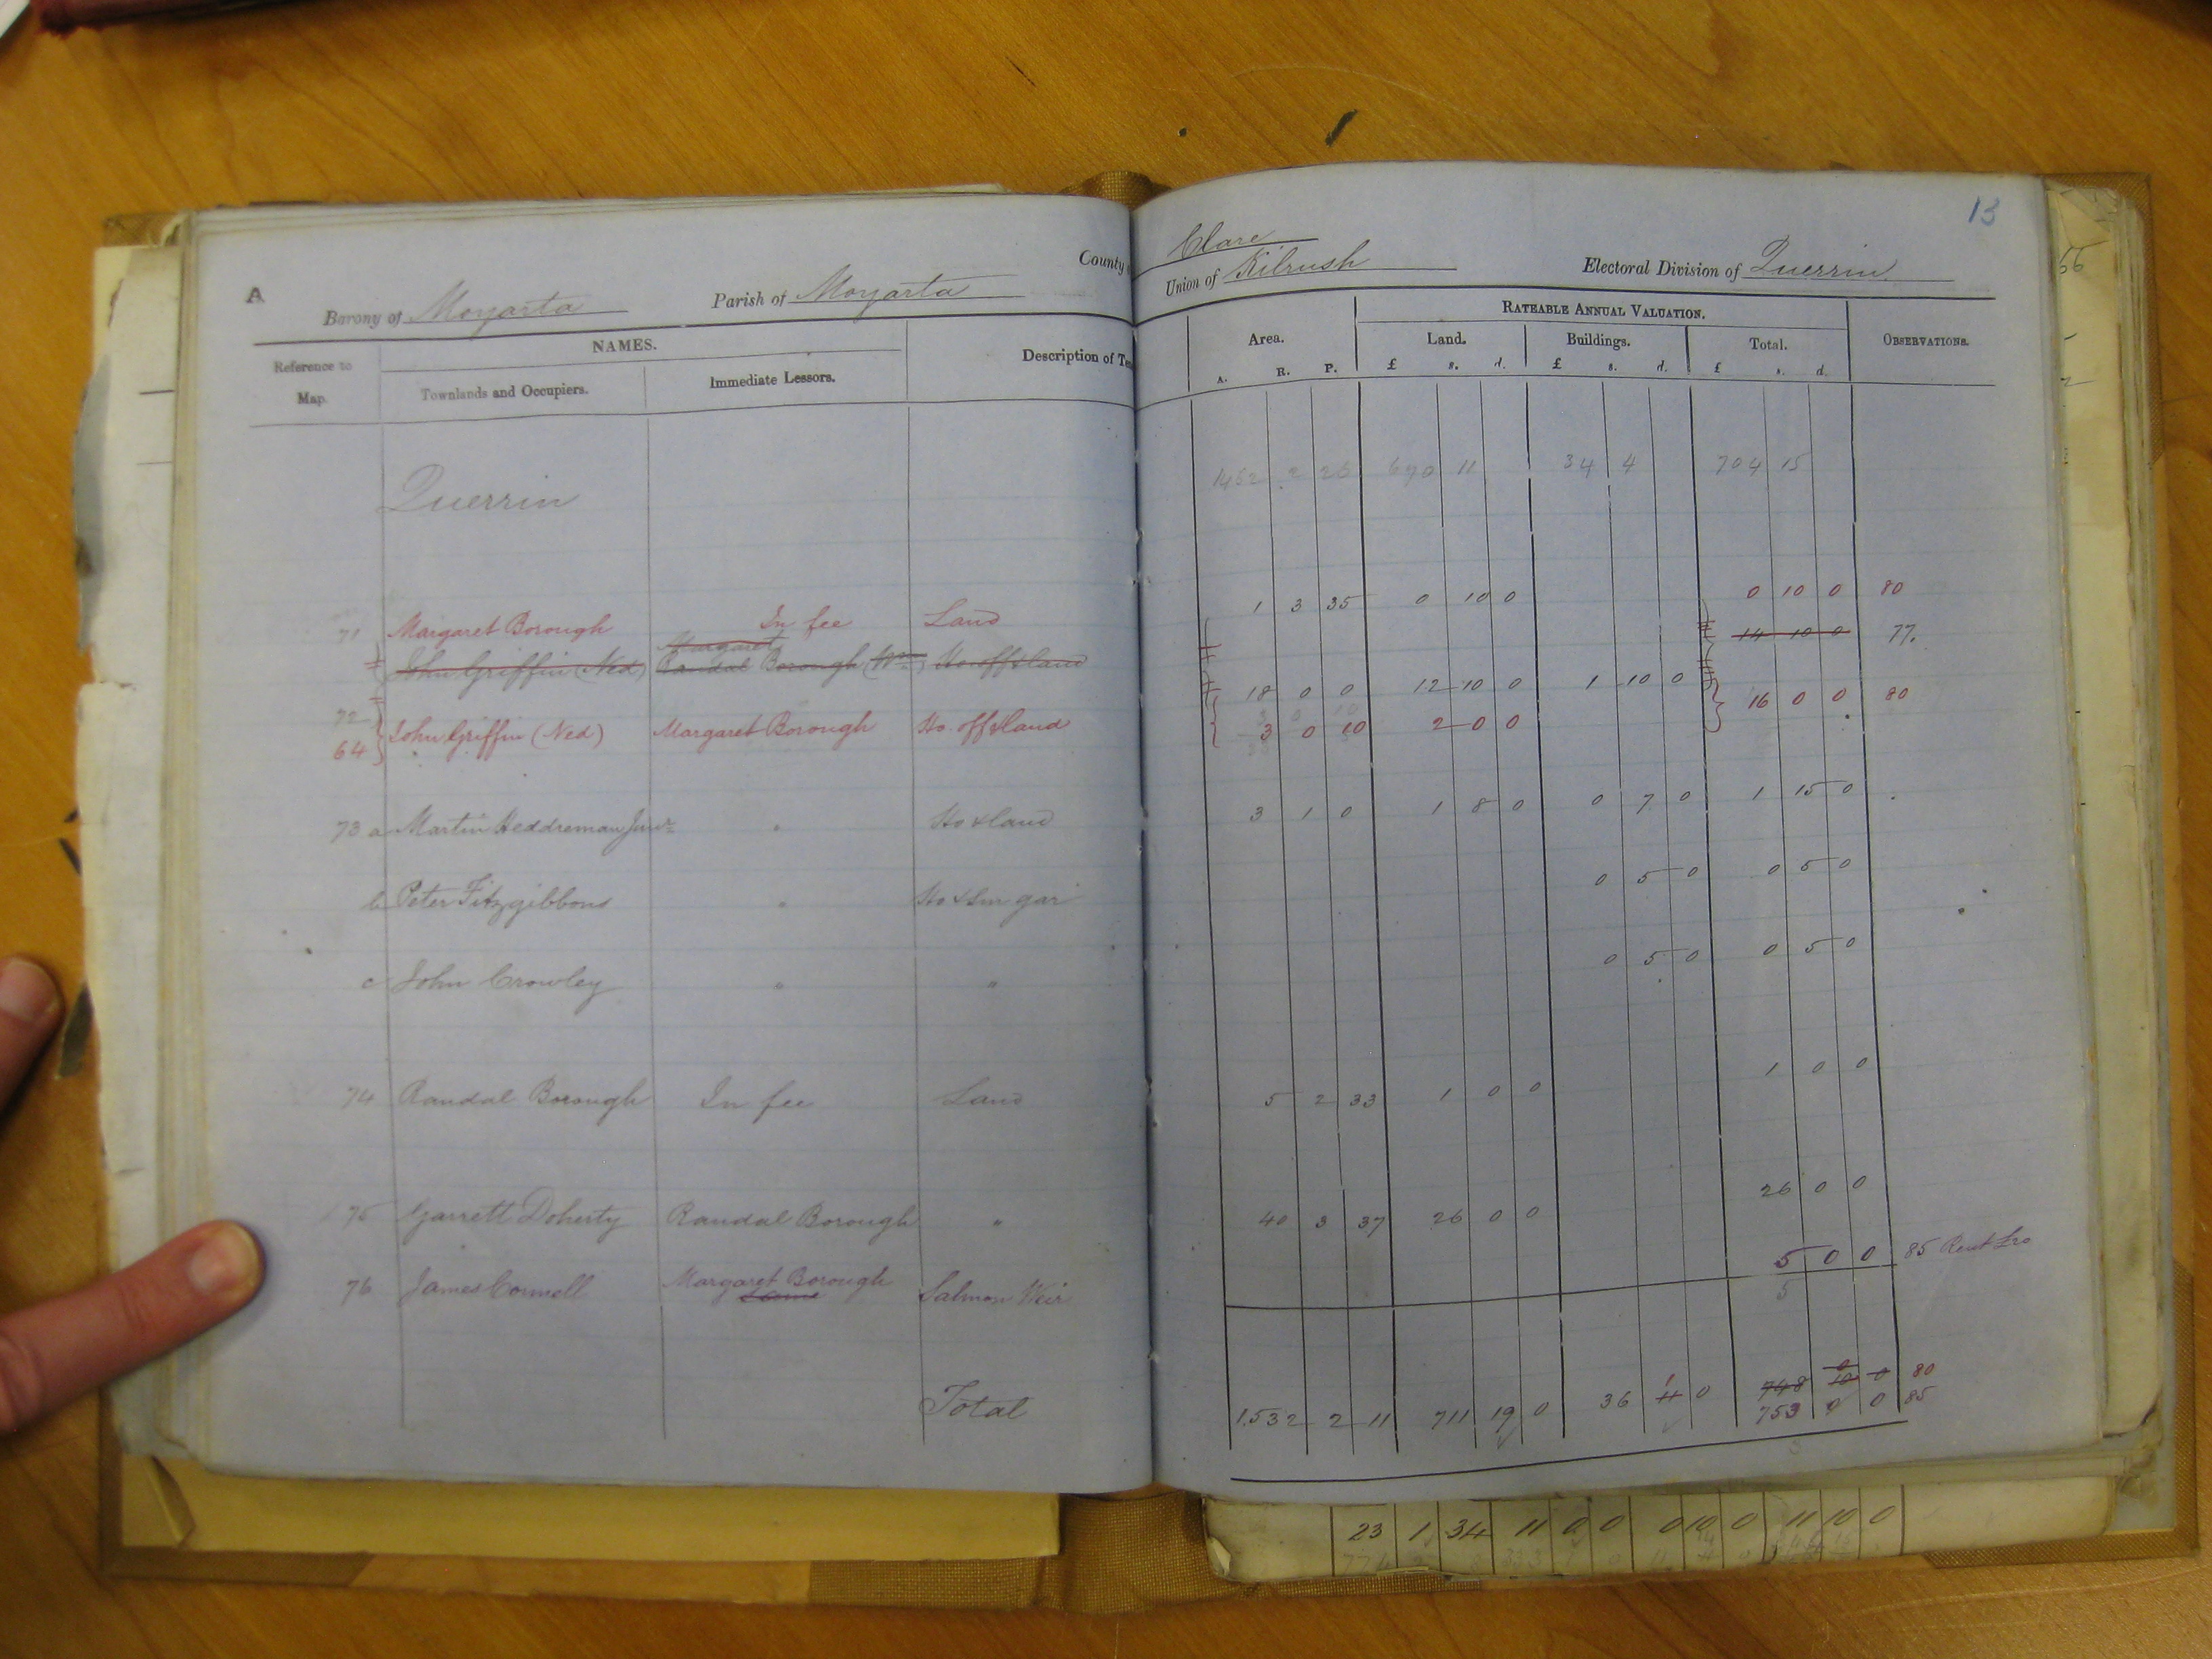 13
County
Clare
A
Barony of Moyarta
Parish of Moyarta
Union of Kilrush
Electoral Division of Querrin
Reference to Map.
NAMES.
Townlands and Occupiers.
Immediate Lessors.
Description of Te
Area.
A. R. P.
RATEABLE ANNUAL VALUATION.
Land.
£ s. d.
Buildings.
£ s. d.
Total.
£ s. d.
OBSERVATIONS.
Querrin 1452 2 26 690 11 34 4 704 15
71 Margaret Borough In fee Land 1 3 35 0 10 0 0 10 0 80
John Griffin (Ned) Margaret Randal Borough Ho off & land 14 10 0 77.
72 64 John Griffin (Ned) Margaret Borough Ho. off & land 18 0 0 12 10 0 1 10 0 16 0 0 80
3 0 10 2 0 0
73 a Martin Heddreman Junr " Ho & land 3 1 0 1 8 0 0 7 0 1 15 0
b Peter Fitzgibbons " Ho & Sm gar 0 5 0 0 5 0
c John Crowley " " 0 5 0 0 5 0
74 Randal Borough In fee Land 5 2 33 1 0 0 1 0 0
75 Garrett Doherty Randal Borough " 40 3 37 26 0 0 26 0 0
76 James Connell Margaret Borough Same Salmon Weir 5 0 0 85 Rent
5
Total 1532 2 11 711 19 0 36 1 4 0 748 10 0 0 80
753 0 0 85
23 1 34 11 0 0 0 10 0 11 10 0